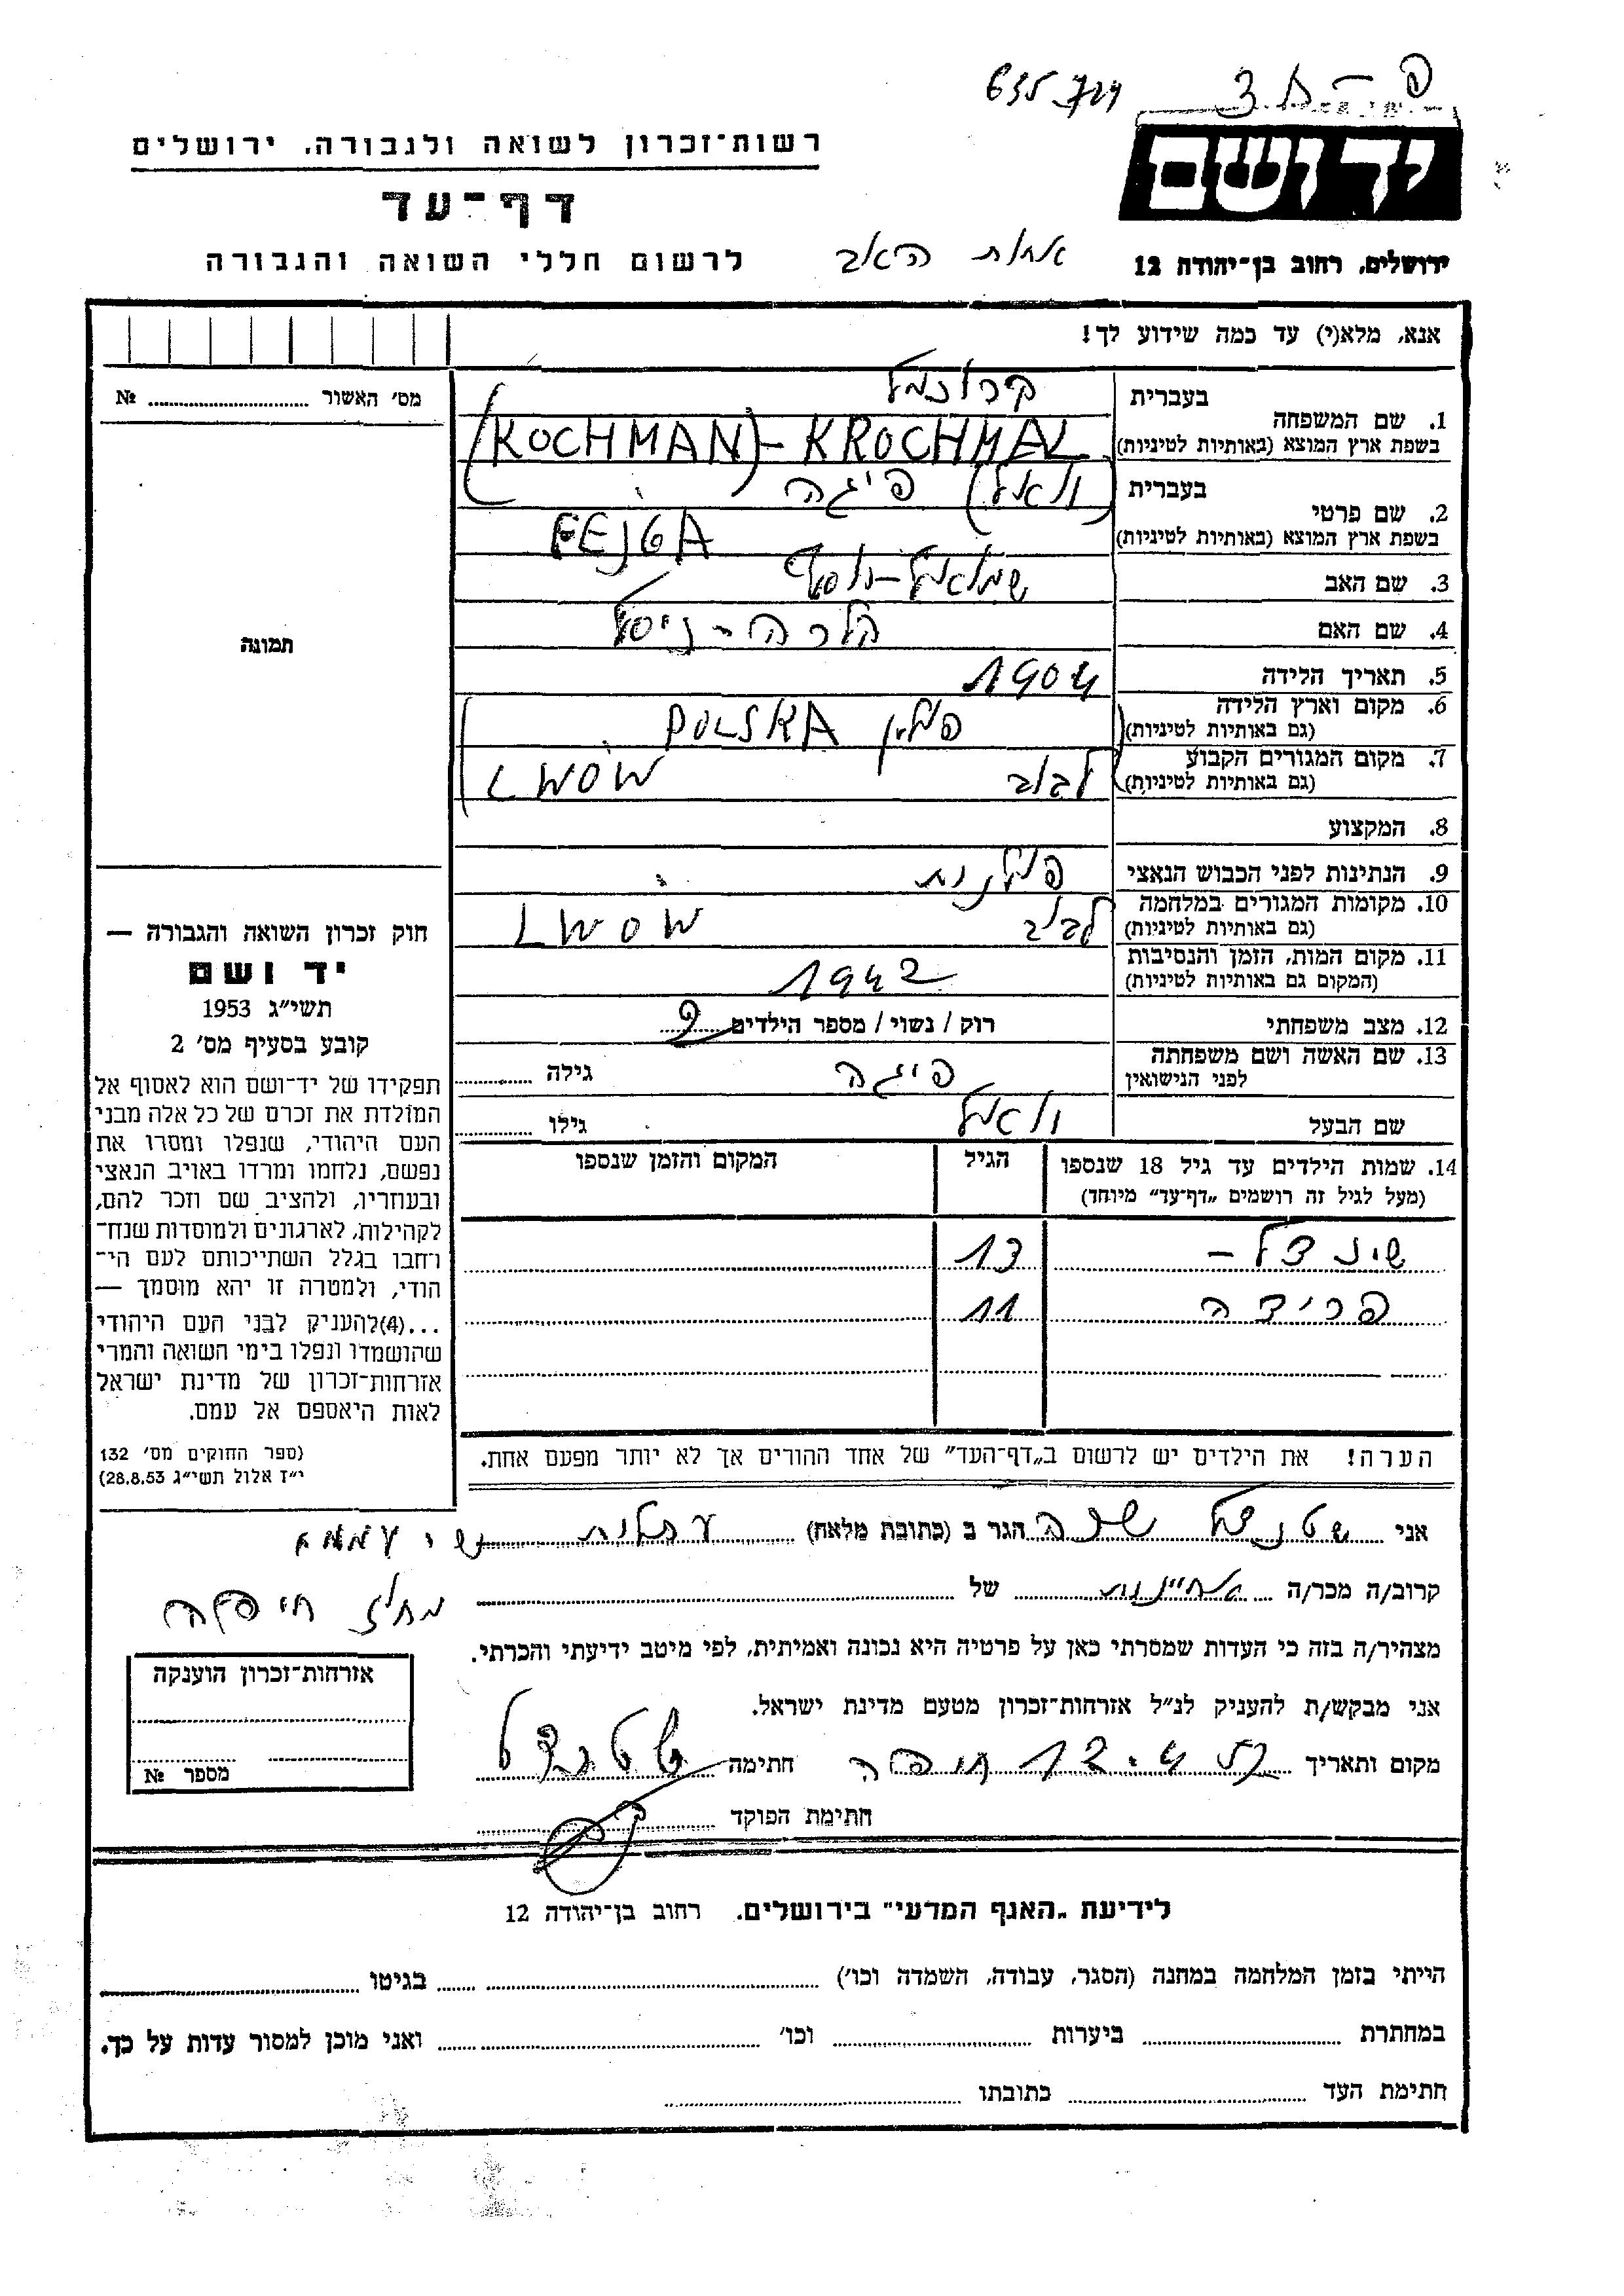 יד ושם
רשות־זכרון לשואה ולגבורה, ירושלים
דף־עד
ירושלים, רחוב בן־יהודה 12
אחות האב
לרשום חללי השואה והגבורה
אנא, מלא(י) עד כמה שידוע לך!
מס׳ האשור № 
1. שם המשפחה
בעברית קרוכמל
בשפת ארץ המוצא (באותיות לטיניות) KROCHMAL - (KOCHMAN)
2. שם פרטי
בעברית פיגה
בשפת ארץ המוצא (באותיות לטיניות) FEJGA
3. שם האב
4. שם האם
5. תאריך הלידה 1904
6. מקום וארץ הלידה
(גם באותיות לטיניות) פולין POLSKA
7. מקום המגורים הקבוע
(גם באותיות לטיניות) לבוב LWOW
8. המקצוע
9. הנתינות לפני הכבוש הנאצי פולנית
10. מקומות המגורים במלחמה
(גם באותיות לטיניות) לבוב LWOW
11. מקום המות, הזמן והנסיבות
(המקום גם באותיות לטיניות) 1942
12. מצב משפחתי רוק / נשוי / מספר הילדים 2
13. שם האשה ושם משפחתה
לפני הנישואין פיגה גילה
שם הבעל גילו
14. שמות הילדים עד גיל 18 שנספו
(מעל לגיל זה רושמים „דף־עד” מיוחד)
הגיל
המקום והזמן שנספו
שינדל - 13
פרידה 11
הערה! את הילדים יש לרשום ב„דף־העד” של אחד ההורים אך לא יותר מפעם אחת.
תמונה
חוק זכרון השואה והגבורה —
יד ושם
תשי״ג 1953
קובע בסעיף מס׳ 2
תפקידו של יד־ושם הוא לאסוף אל
המולדת את זכרם של כל אלה מבני
העם היהודי, שנפלו ומסרו את
נפשם, נלחמו ומרדו באויב הנאצי
ובעוזריו, ולהציב שם וזכר להם,
לקהילות, לארגונים ולמוסדות שנח־
רחבו בגלל השתייכותם לעם הי־
הודי, ולמטרה זו יהא מוסמך —
...(4) להעניק לבני העם היהודי
שהושמדו ונפלו בימי השואה והמרי
אזרחות־זכרון של מדינת ישראל
לאות היאספם אל עמם.
(ספר החוקים מס׳ 132
י״ז אלול תשי״ג 28.8.53)
אני שטנדל שרה הגר ב (כתובת מלאה) עתלית
קרוב/ה מכר/ה אחיינית של
מחוז חיפה
מצהיר/ה בזה כי העדות שמסרתי כאן על פרטיה היא נכונה ואמיתית, לפי מיטב ידיעתי והכרתי.
אני מבקש/ת להעניק לנ״ל אזרחות־זכרון מטעם מדינת ישראל.
מקום ותאריך חיפה חתימה שטנדל
חתימת הפוקד
אזרחות־זכרון הוענקה
מספר №
לידיעת „האגף המדעי” בירושלים, רחוב בן־יהודה 12
הייתי בזמן המלחמה במחנה (הסגר, עבודה, השמדה וכו׳) בגיטו
במחתרת ביערות וכו׳ ואני מוכן למסור עדות על כך.
חתימת העד כתובתו